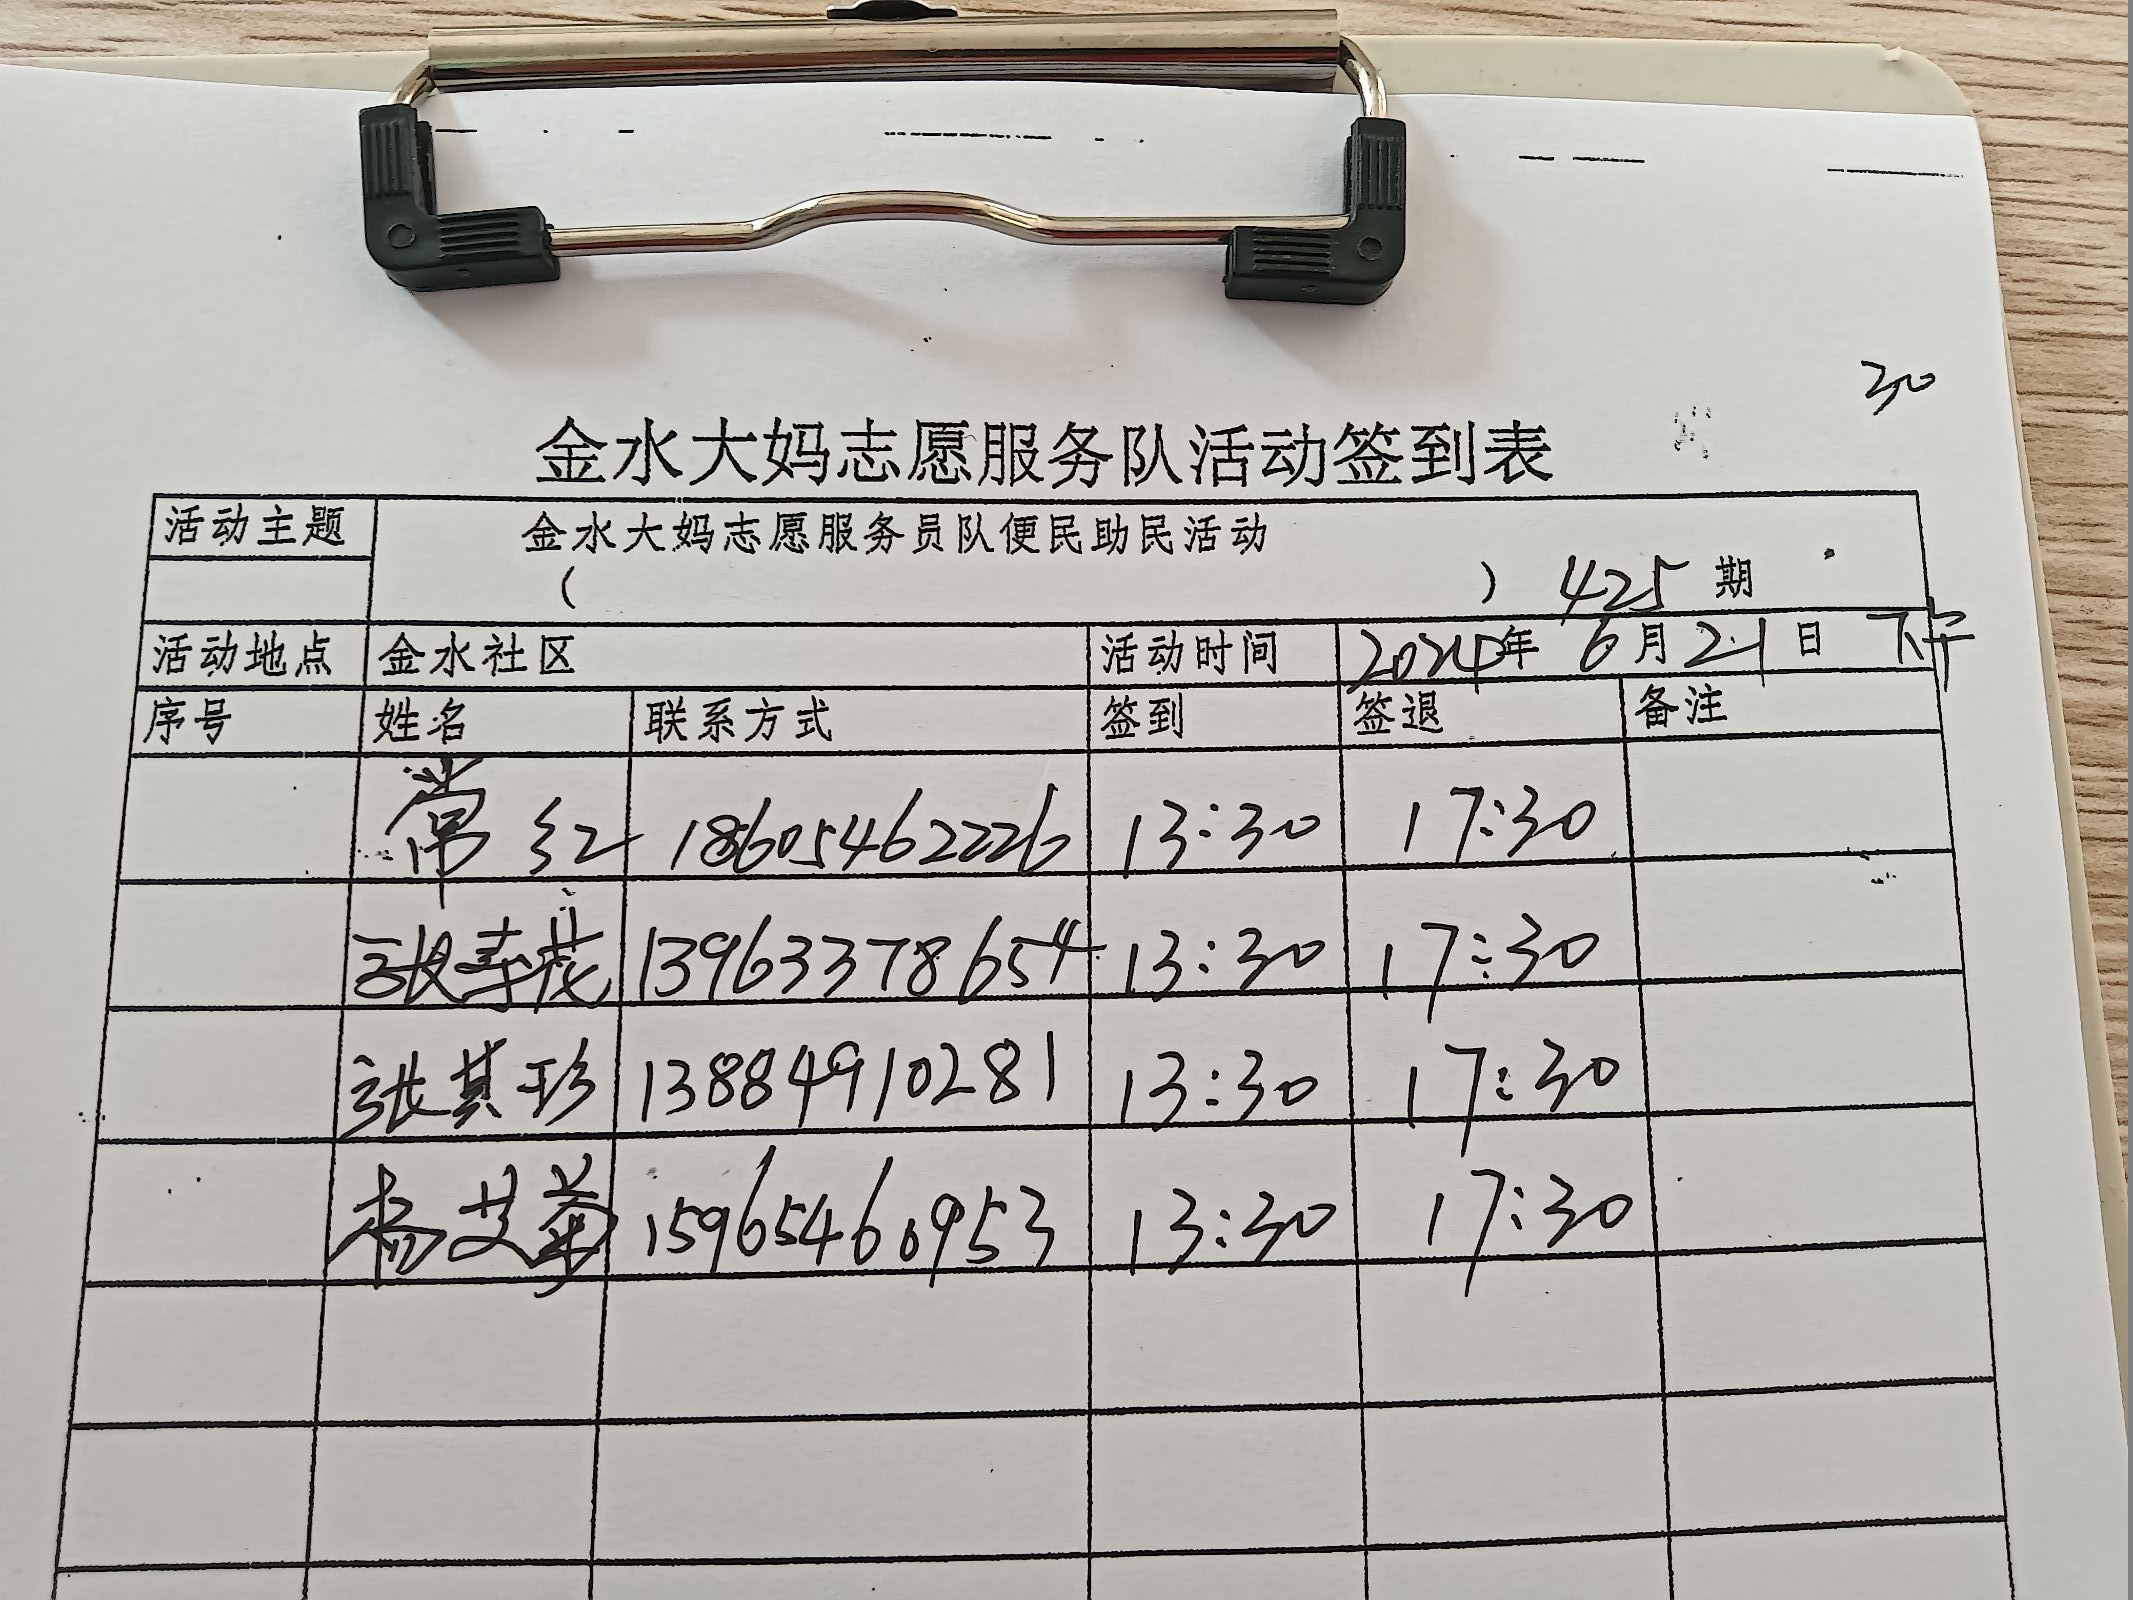 30
金水大妈志愿服务队活动签到表
活动主题 金水大妈志愿服务员队便民助民活动
( ) 425 期
活动地点 金水社区 活动时间 2024年 6月21日 下午
序号 姓名 联系方式 签到 签退 备注
常红 18605462226 13:30 17:30
张寿茂 13963378654 13:30 17:30
张其珍 13884910281 13:30 17:30
杨艾菊 15965460953 13:30 17:30